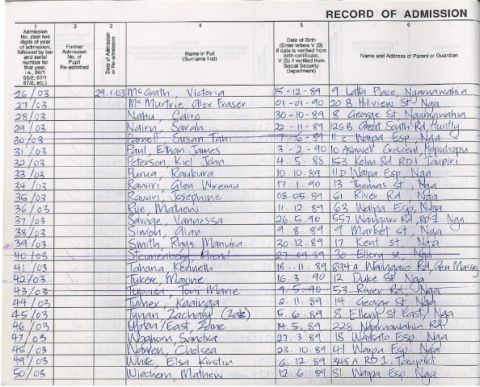 RECORD OF ADMISSION
1 Admission No. (last two digits of year of admission, followed by bar and serial number for that year, i.e. 86/1 86/2 87/1 87/2, etc.)
2 Former Admission No. of Pupil Re-admitted
3 Date of Admission or Re-admission
4 Name in Full (Surname first)
5 Date of Birth (Enter letters V (B) if data is verified from birth certificate, V (S) if verified from Social Security Department)
6 Name and Address of Parent or Guardian
26/03 29.1.03 McGrath, Victoria 15-12-89 9 Place, Ngaruawahia
27/03 McMurtrie, Alex Fraser 01-01-90 20 B Hillview St, Nga
28/03 Nahu, Cairo 30-10-89 8 George St Ngaruawahia
29/03 Nairn, Sarah 22-11-89 South Rd, Huntly
30/03 Parnell, Susan 7-6-89 11 c Waipa Esp. Nga
31/03 Paul, Ethan James 3-2-90 10 Crescent,
32/03 Peterson, Kiel John 4.5.89 153 Rd RD1 Taupiri
33/03 Purua, Raukura 10.10.89 11D Waipa Esp. Nga
34/03 Rawiri, Glen Wremu 17.1.90 13 Thomas St, Nga
35/03 Rawiri, Josephine 08.05.89 61 River Rd, Nga
36/03 Rue, Mathew 11.12.89 63 Waipa Esp, Nga
37/03 Savage, Vannessa 26.5.90 557 Rd, RD1 Nga
38/03 Simon, Alan 9.8.89 9 Market st, Nga
39/03 Smith, Rhys Manuka 30.12.89 17 Kent st, Nga
40/03 30 Ellery st, Nga
41/03 Tahana Kenneth 18-11-89 Rd, Glen Massey
42/03 Tukere, Maxine 16.3.90 12 Duke St Nga
43/03 Toni Marie 9.5.90 53 River Rd Nga
44/03 Turner, 2.11.89 14 George St Nga
45/03 Tynan Zachary (Zak) 5.6.89 8 Ellery St East, Nga
46/03 /East, Zane 14.5.89 Ngaruawahia Rd
47/03 Sandra 27.3.89 18 Waikato Esp. Nga
48/03 Chelsea 23.10.89 41 Waipa Esp. Nga
49/03 White Elsa 6.12.89 345A RD1, Taupiri
50/03 Wiechern, Mathew 12.6.89 51 Waipa Esp, Nga